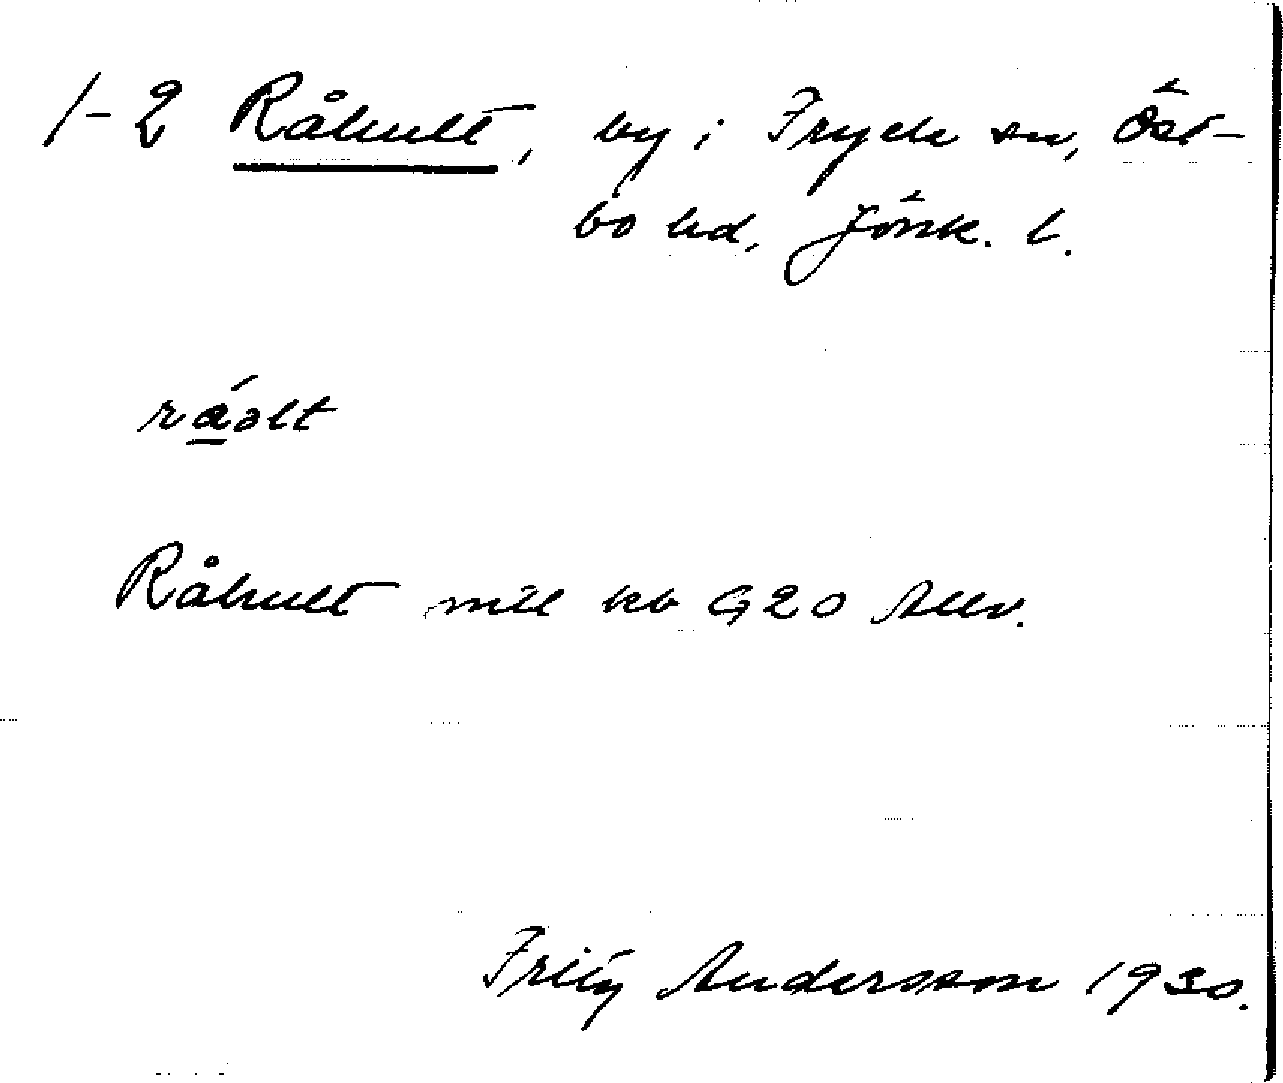 1-2 Råhult, by i Fryele sn, Öst-
bo hd, Jönk. l.
råolt
Råhult mtl kb 920
Fritz Andersson 1930.